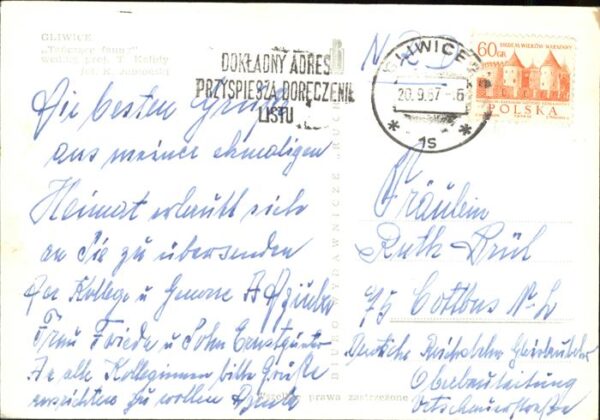 GLIWICE
„Tańczące fauny"
według prof. T. Kalidy
fot. K. Jabłoński
DOKŁADNY ADRES
PRZYSPIESZA DORĘCZENIE
LISTU
GLIWICE
20.9.67
1s
60 GR
SIEDEM WIEKÓW WARSZAWY
POLSKA
N
Die besten Grüße
aus meiner ehmaligen
Heimat erlaubt sich
an Sie zu übersenden
Der Kollege u Genosse A
Frau Frieda u Sohn Ernstgünter
An alle Kolleginnen bitte Grüße
ausrichten zu wollen
BIURO WYDAWNICZE „RUCH"
Wszelkie prawa zastrzeżone
Fräulein
Ruth Brül
75 Cottbus N-L
Deutsche Reichsbahn
Oberbauleitung